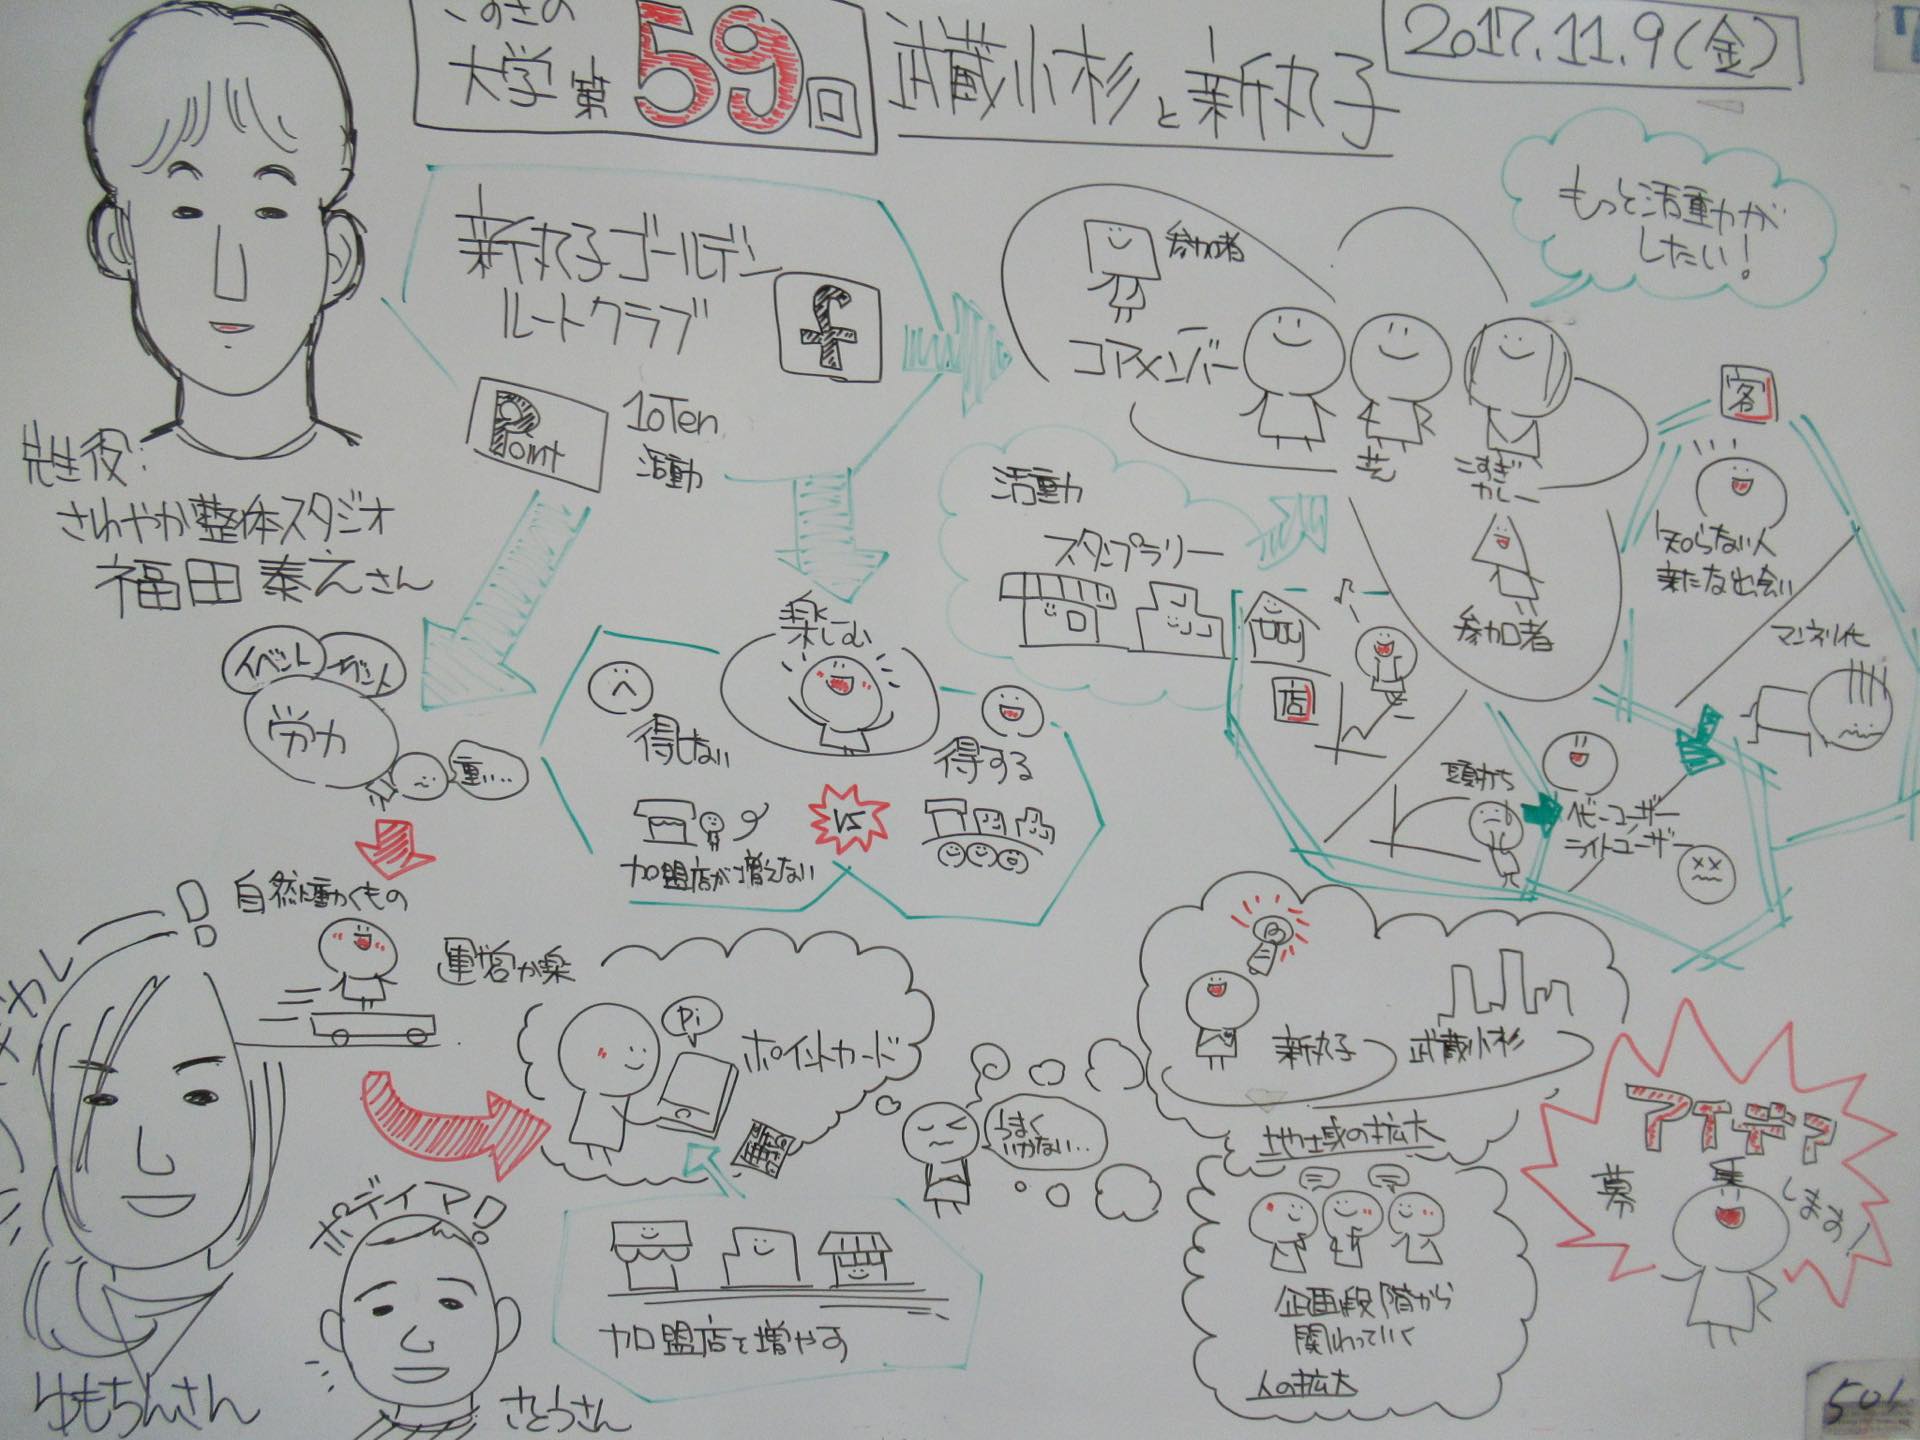 こすぎの
大学 第59回
武蔵小杉と新丸子
2017.11.9(金)
新丸子ゴールデン
ルートクラブ
f
Point
10Ten
活動
先生役:
さわやか整体スタジオ
福田泰えさん
参加者
コアメンバー
芝
こすぎ
カレー
もっと活動が
したい!
活動
スタンプラリー
参加者
客
知らない人
新たな出会い
マンネリ化
店
頭打ち
ヘビーユーザー
ライトユーザー
イベント
労力
重い…
楽しむ
得しない
得する
VS
加盟店が増えない
自然と動くもの
運営が楽
Pi
ポイントカード
うまく
いかない…
新丸子
武蔵小杉
地域の拡大
企画段階から
関わっていく
人の拡大
アイデア
募集します!
加盟店を増やす
ボディイマ!
さとうさん